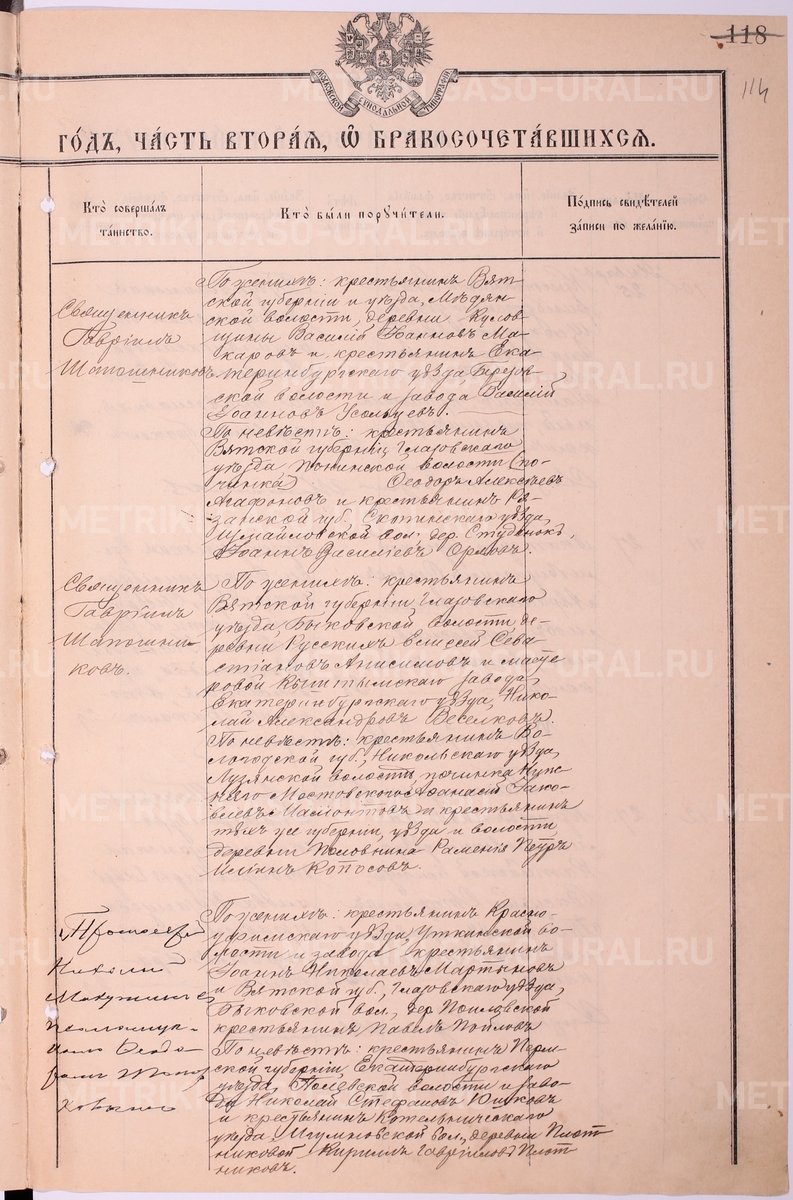 118
114
МОСКОВСКОЙ СУНОДАЛЬНОЙ ТИПОГРАФІИ
ГОДЪ, ЧАСТЬ ВТОРАЯ, Ѽ БРАКОСОЧЕТАВШИХСЯ.
Кто совершалъ
таинство.
Кто были поручители.
Подпись свидѣтелей
записи по желанію.
Священникъ
Гавріилъ
Шапошниковъ
По женихѣ: крестьянинъ Вят-
ской губерніи и уѣзда, Мѣдян-
ской волости, деревни
Василій Іоанновъ Ма-
каровъ и крестьянинъ Ека-
теринбургскаго уѣзда Березов-
ской волости и завода Василій
Іоанновъ Усольцевъ.
По невѣстѣ: крестьянинъ
Вятской губерніи, Глазовскаго
уѣзда, Понинской волости (по-
чинка) Ѳеодоръ Алексѣевъ
Агафоновъ и крестьянинъ Ря-
занской губ. Скопинскаго уѣзда,
Измайловской вол. дер. Студенокъ,
Іоаннъ Василіевъ Орловъ.
Священникъ
Гавріилъ
Шапошни-
ковъ.
По женихѣ: крестьянинъ
Вятской губерніи, Глазовскаго
уѣзда, Быковской волости де-
ревни Русскихъ Елисей Сева-
стіановъ Анисимовъ и масте-
ровой Кыштымскаго завода,
Екатеринбургскаго уѣзда, Нико-
лай Александровъ Веселковъ.
По невѣстѣ: крестьянинъ Во-
логодской губ., Никольскаго уѣзда,
Лузянской волости, починка Ниж-
няго Мостовского Аѳанасій Іако-
влевъ и крестьянинъ
тѣхъ же губерніи, уѣзда и волости
деревни Половина Раменія Петръ
Ильинъ Копосовъ.
Протоіерей
Николай
По женихѣ: крестьянинъ Красно-
уфимскаго уѣзда, Уткинской во-
лости и завода, крестьянинъ
Іоаннъ Николаевъ Мартыновъ
и Вятской губ., Глазовскаго уѣзда,
Быковской вол., дер.
крестьянинъ Павелъ Пойловъ
По невѣстѣ: крестьянинъ Перм-
ской губерніи Екатеринбургскаго
уѣзда, Полевской волости и заво-
да, Николай Стефановъ Юшковъ
и крестьянинъ Котельническаго
уѣзда, Игумновской вол., деревни Плот
никовой Кириллъ Гавріиловъ Плот
никовъ.
METRIKI.GASO-URAL.RU